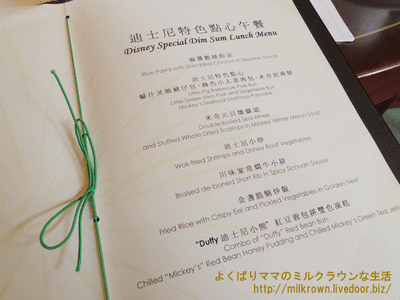 迪士尼特色點心午餐
Disney Special Dim Sum Lunch Menu
麻醬雞絲粉皮
Rice Pasta with Shredded Chicken in Sesame Sauce
迪士尼特色點心
Little Pig Barbecue Pork Bun
Little Green Men Pork and Vegetable Bun
Mickey's Seafood Glutinous Pancake
Double-boiled Sea Whelk
and Stuffed Whole Dried Scallops in Mickey Winter Melon Soup
迪士尼小炒
Wok-fried Shrimps and Disney Root Vegetables
川味家常燜牛小排
Braised de-boned Short Rib in Spicy Sichuan Sauce
金盞脆鱔炒飯
Fried Rice with Crispy Eel and Pickled Vegetables in Golden Nest
"Duffy 迪士尼小熊" 紅豆蓉包拼雙色涼糕
Combo of "Duffy" Red Bean Bun
Chilled "Mickey's" Red Bean Honey Pudding and Chilled Mickey's Green Tea Jelly
よくばりママのミルクラウンな生活
http://milkrown.livedoor.biz/